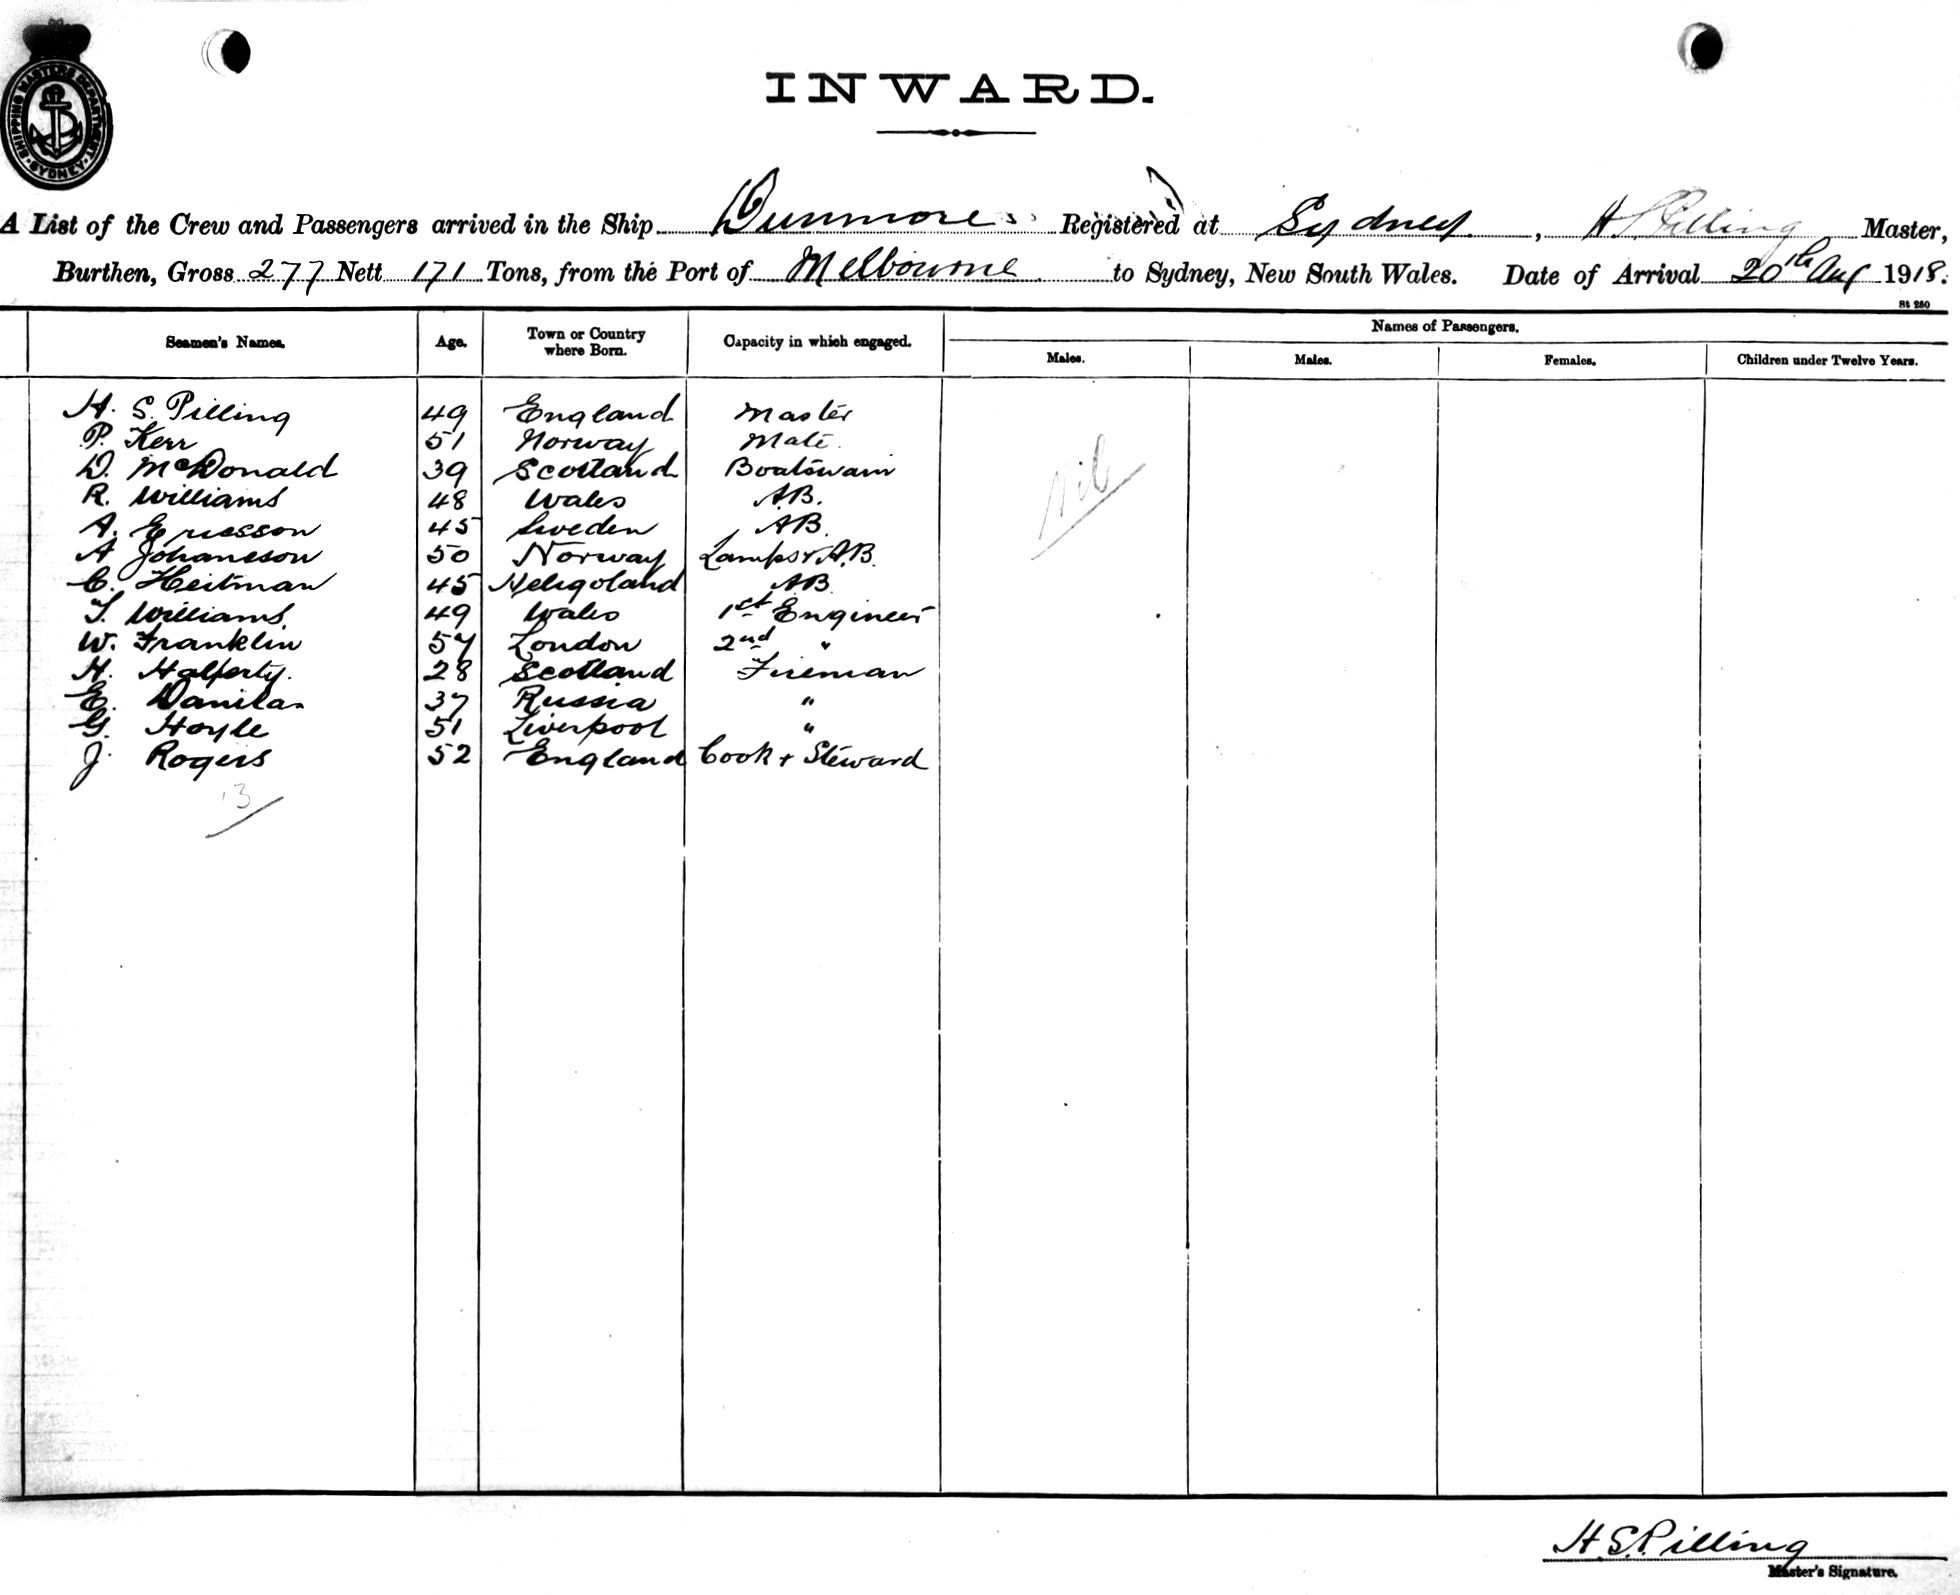 SHIPPING MASTERS DEPARTMENT. SYDNEY
INWARD.
A List of the Crew and Passengers arrived in the Ship Dunmore Registered at Sydney, H S Pilling Master,
Burthen, Gross 277 Nett 171 Tons, from the Port of Melbourne to Sydney, New South Wales. Date of Arrival 20th Aug 1918.
St 250
Seamen's Names. Age. Town or Country where Born. Capacity in which engaged. Names of Passengers.
Males. Males. Females. Children under Twelve Years.
H. S. Pilling 49 England Master
P. Kerr 51 Norway Mate.
D. McDonald 39 Scotland Boatswain
R. Williams 48 Wales A.B.
A. Ericsson 45 Sweden AB.
A Johaneson 50 Norway Lamps & A.B.
C. Heitman 45 Heligoland AB
T. Williams 49 Wales 1st Engineer
W. Franklin 57 London 2nd "
H. Halferty. 28 Scotland Fireman
E. Danila 37 Russia "
G. Hoyle 51 Liverpool "
J. Rogers 52 England Cook + Steward
Nil
13
H.S. Pilling
Master's Signature.